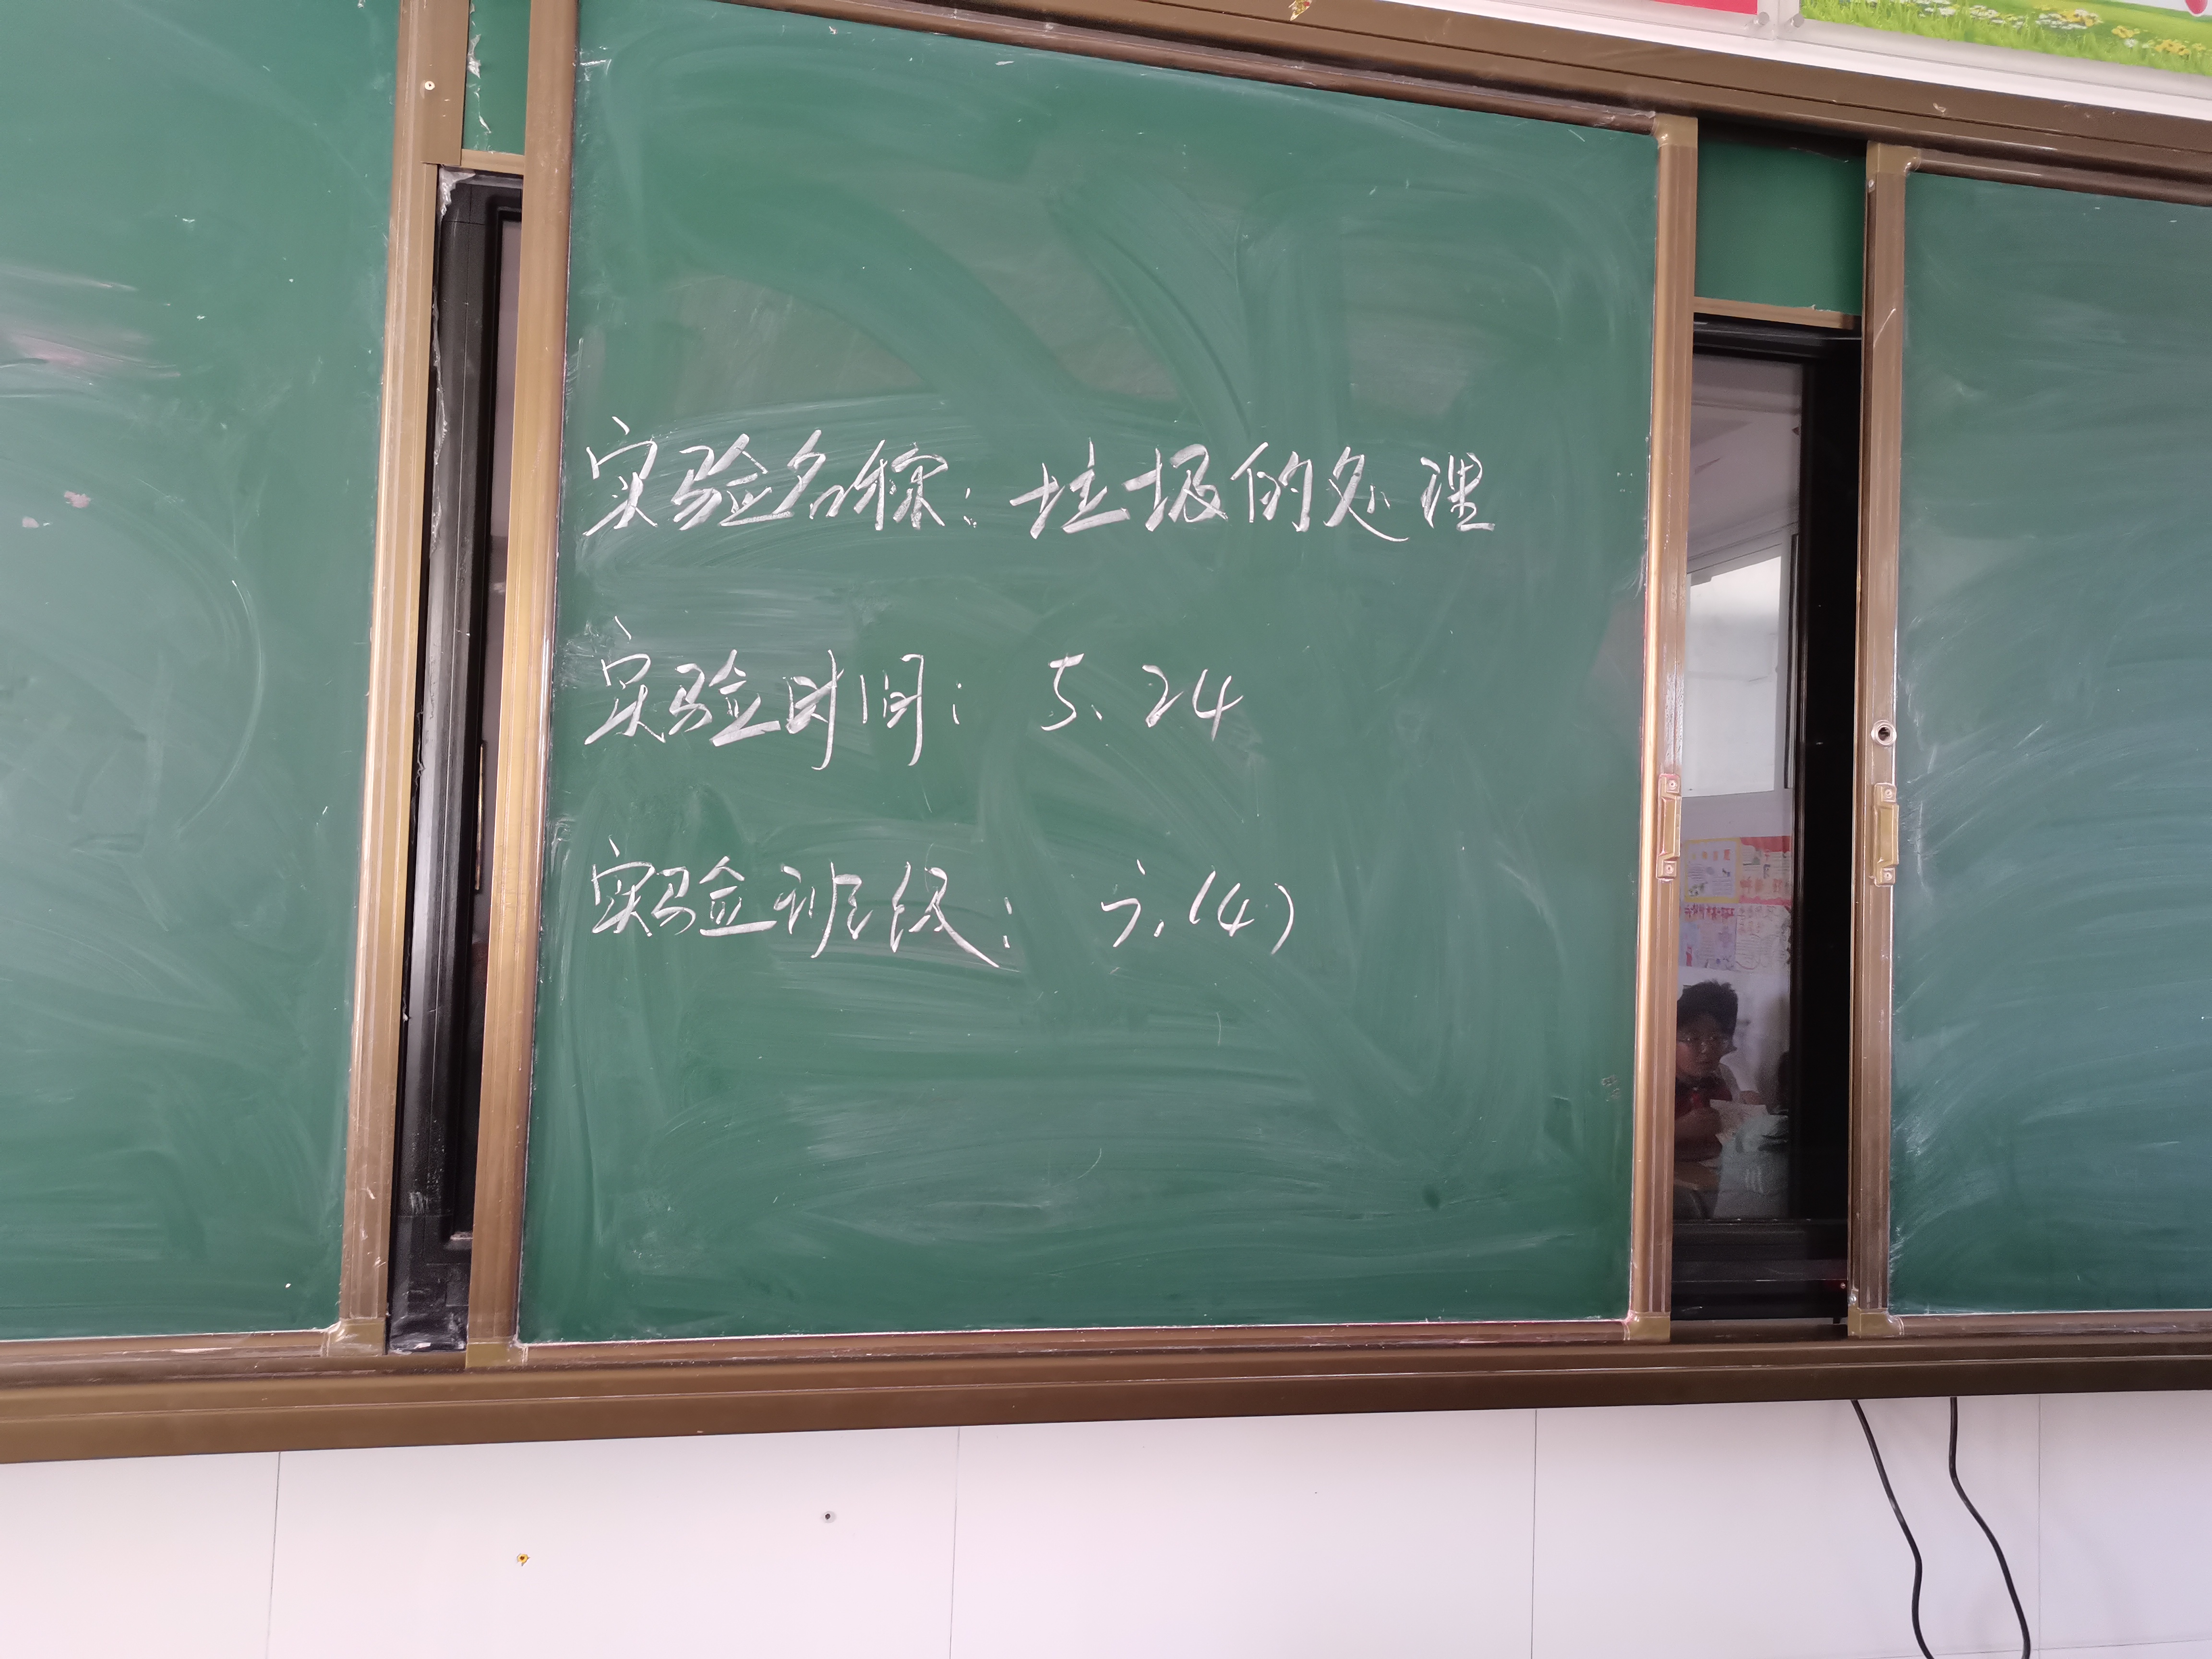 实验名称：垃圾的处理
实验时间：5.24
实验班级：六.(4)